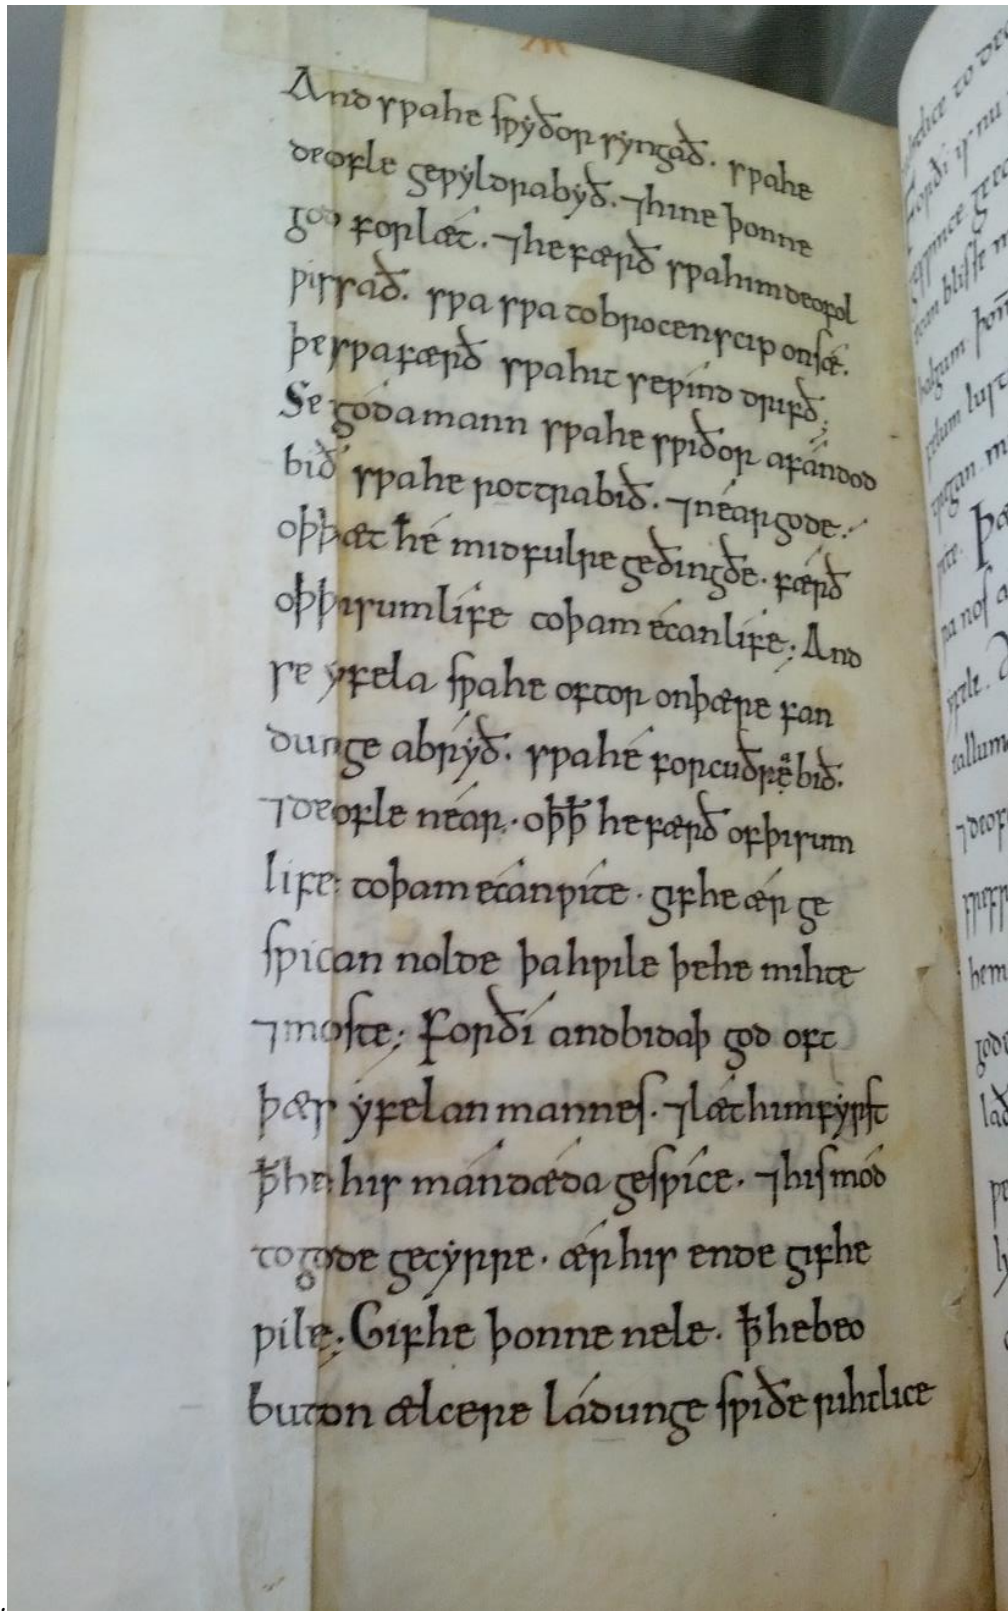 And sƿahe sƿyðor syngað. sƿahe
deofle geƿyldrabyð. ⁊hine þonne
god forlæt. ⁊hefærð sƿahimdeofol
ƿissað. sƿa sƿa tobrocenscip onsǽ.
þesƿafærð sƿahit seƿínd drifð;
Se gódamann sƿahe sƿiðor afándod
bið sƿahe rottrabið. ⁊néargode.
oþþæt hé midfulre geðingðe. færð
ofþisumlífe toþam écanlife; And
se yfela sƿahe oftor onþære fan
dunge abrýð. sƿahé forcuðrębið.
⁊deofle néar. oþꝥ hefærð ofþisum
life: toþamécanƿíte. gifhe ǽr ge
sƿican nolde þahƿile þehe mihte
⁊moste; Forðí andbidaþ god oft
þæs ýfelanmannes. ⁊lǽthimfyrst
ꝥhe his mándǽda gesƿíce. ⁊hismód
togode gecýrre. ǽrhis ende gifhe
ƿile; Gifhe þonne nele. ꝥhebeo
buton ælcere ládunge sƿiðe rihtlice